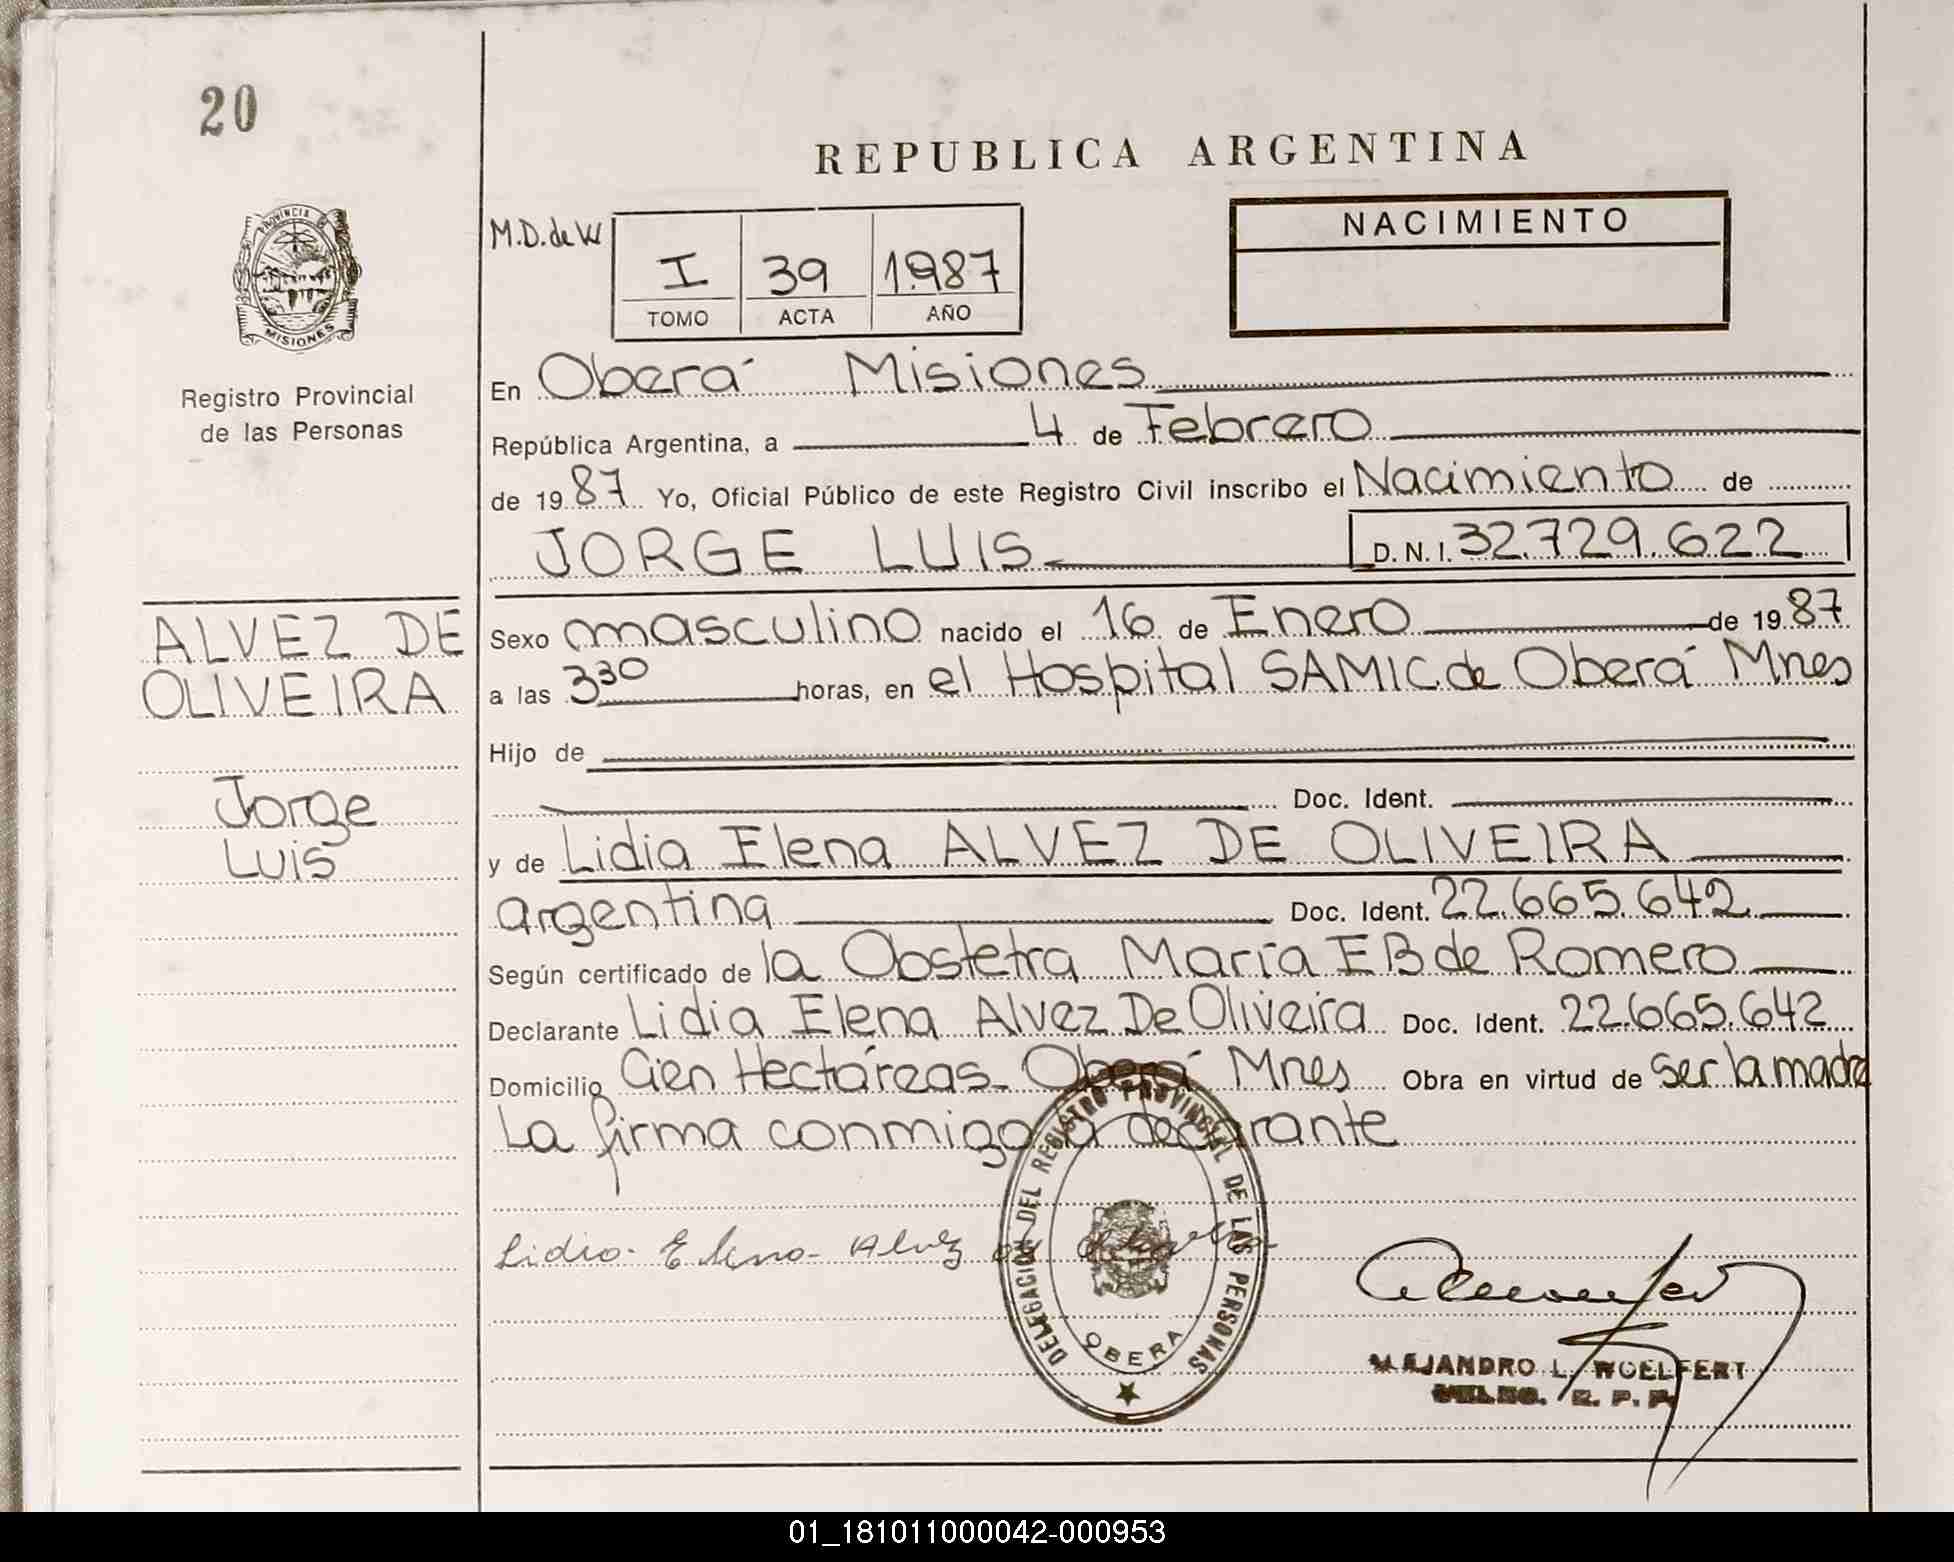 20
PROVINCIA
MISIONES
Registro Provincial
de las Personas
ALVEZ DE
OLIVEIRA
Jorge
Luis
REPUBLICA ARGENTINA
M.D. de W
I 39 1987
TOMO ACTA AÑO
NACIMIENTO
En Oberá Misiones
República Argentina, a 4 de Febrero
de 1987 Yo, Oficial Público de este Registro Civil inscribo el Nacimiento de
JORGE LUIS D.N.I. 32.729.622
Sexo masculino nacido el 16 de Enero de 1987
a las 3 30 horas, en el Hospital SAMIC de Oberá Mnes
Hijo de
Doc. Ident.
y de Lidia Elena ALVEZ DE OLIVEIRA
argentina Doc. Ident. 22.665.642
Según certificado de la Obstetra María E B de Romero
Declarante Lidia Elena Alvez De Oliveira Doc. Ident. 22.665.642
Domicilio Cien Hectáreas Oberá Mnes Obra en virtud de ser la madre
La firma conmigo la declarante
Lidia Elena Alvez de
DELEGACION DEL REGISTRO PROVINCIAL DE LAS PERSONAS
OBERA
ALEJANDRO L. WOELFERT
R. P. P.
01_181011000042-000953